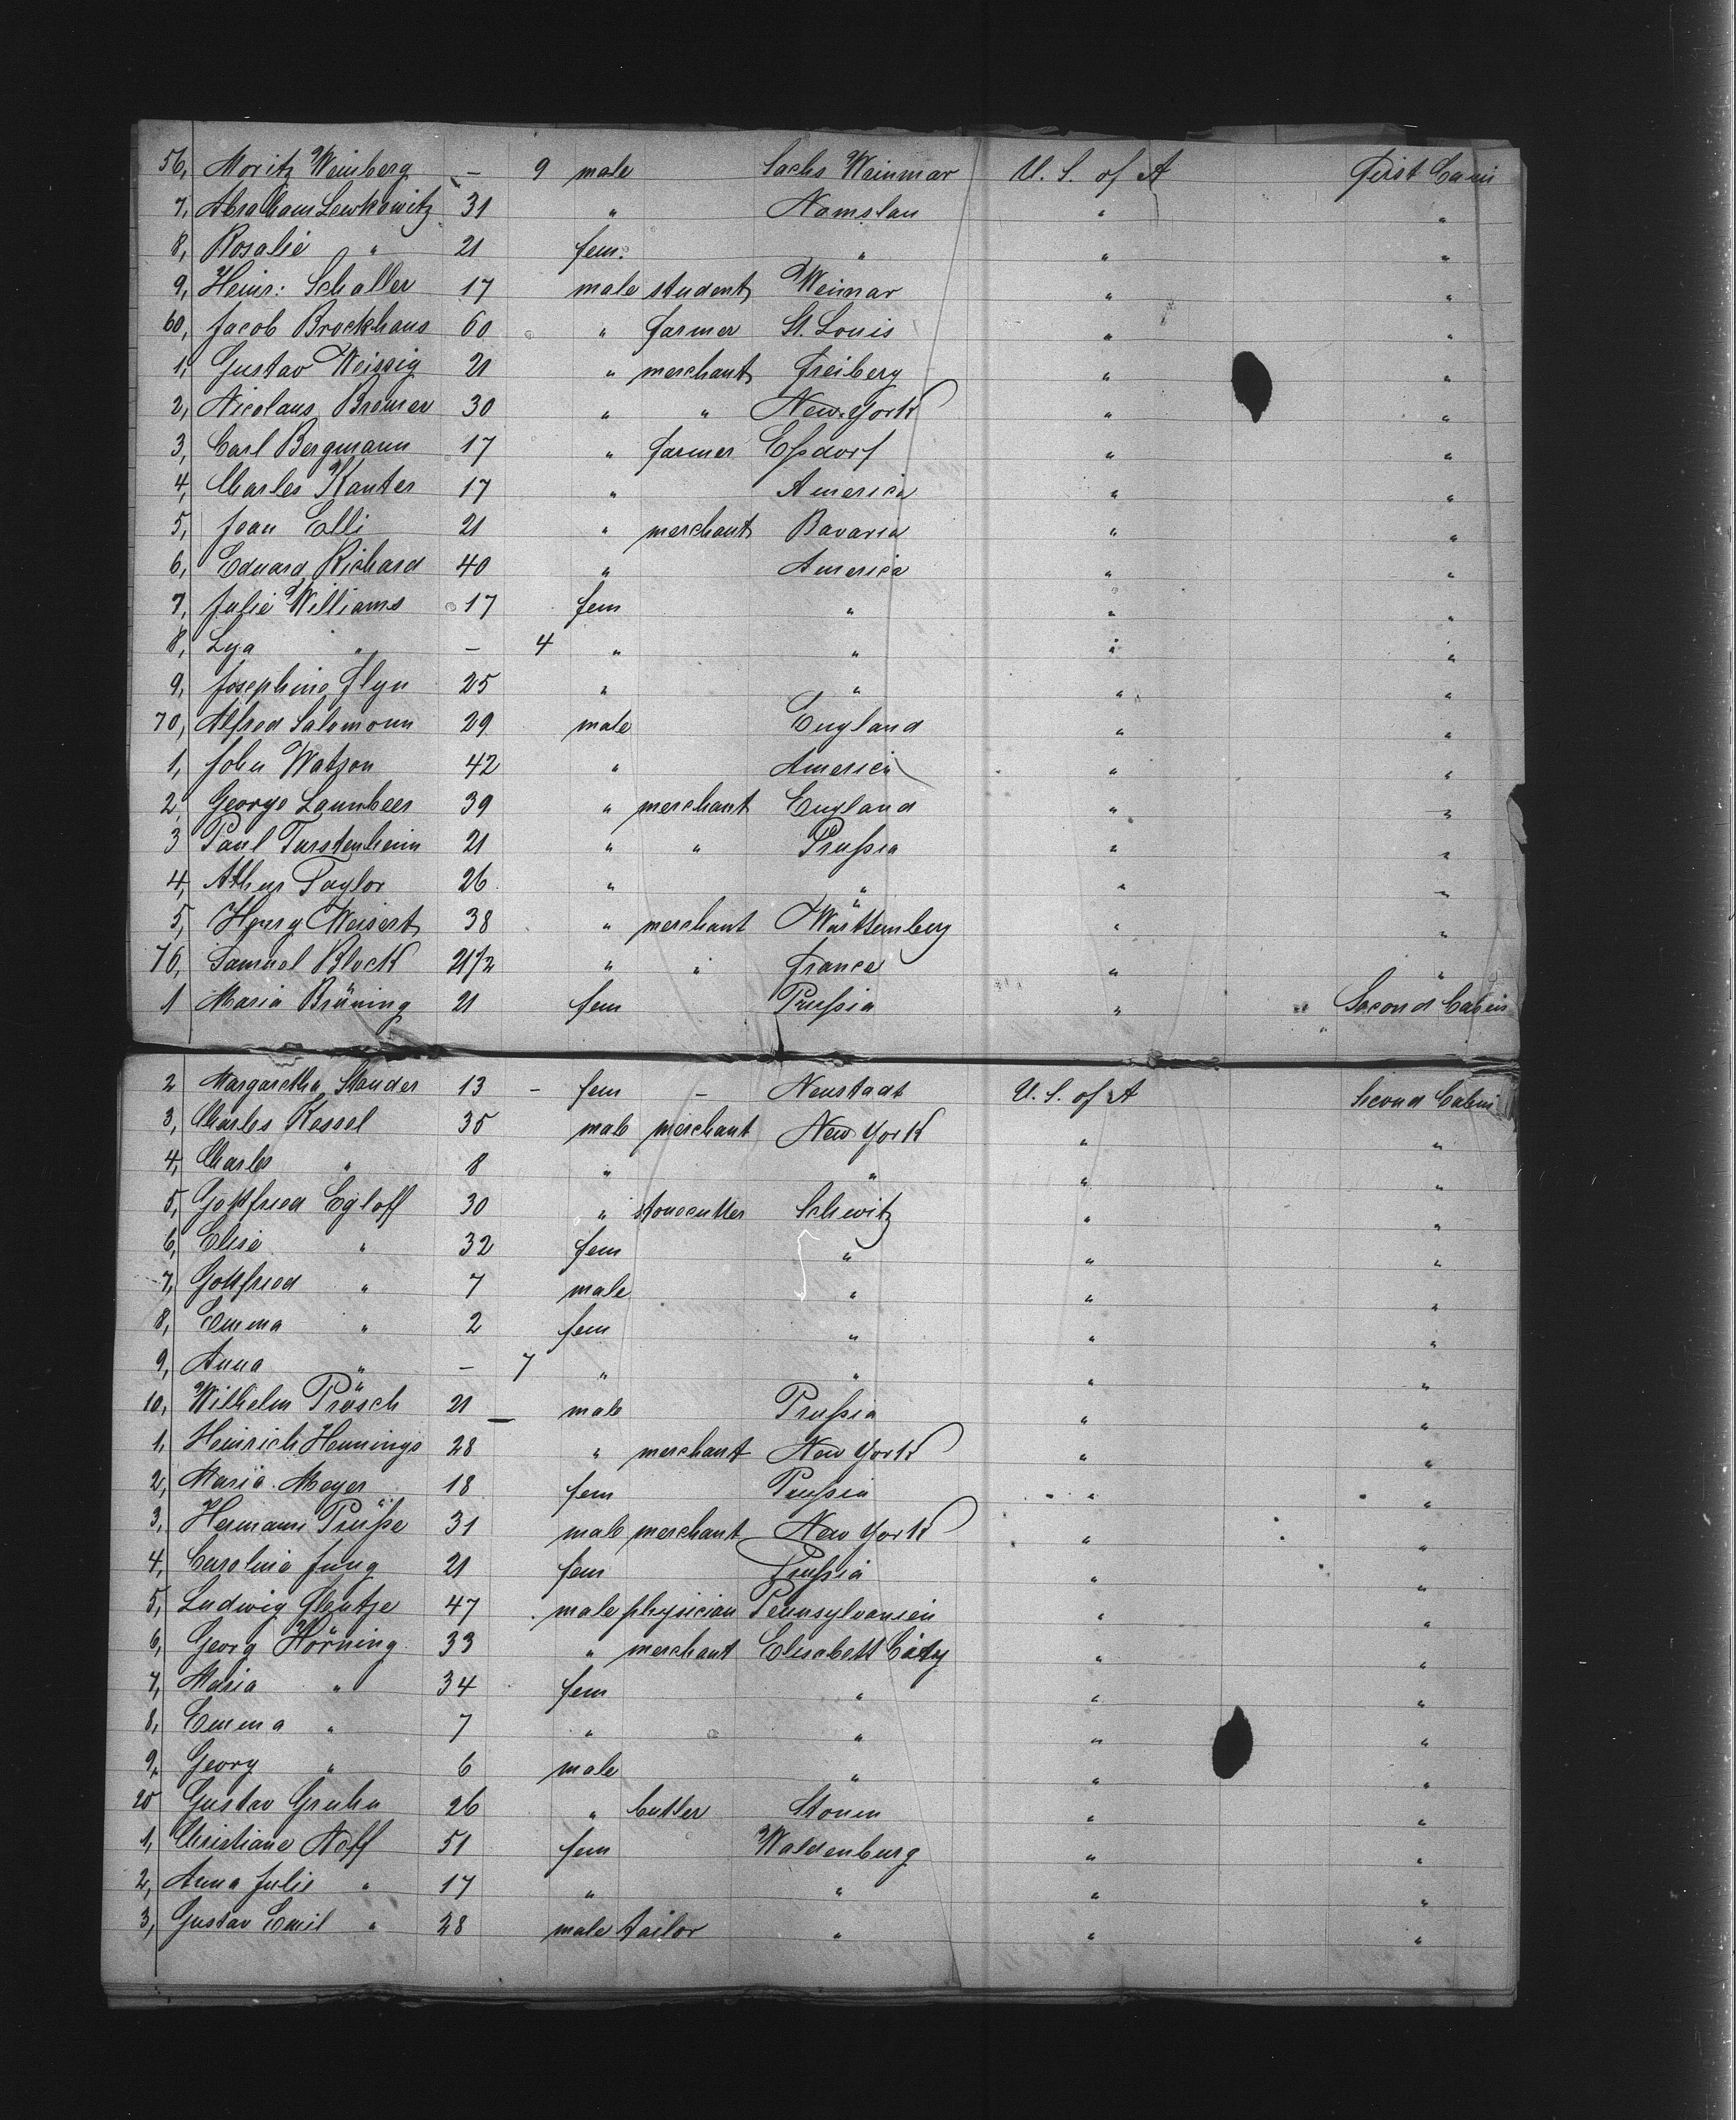 56, Moritz Weinberg – 9 male Sachs Weinmar U. S. of A First Cabin
7, Abraham Lewkowitz 31 " Namslau " "
8, Rosalie " 21 fem: " " "
9, Heinr: Schaller 17 male student Weimar " "
60, Jacob Brockhaus 60 " farmer St. Louis " "
1, Gustav Weissig 21 " merchant Freiberg " "
2, Nicolaus Bremer 30 " " New-York " "
3, Carl Bergmann 17 " farmer Eßdorf " "
4, Charles Kanter 17 " America " "
5, Jean Elli 21 " merchant Bavaria " "
6, Eduard Richard 40 " America " "
7, Julie Williams 17 fem " " "
8, Lya " – 4 " " " "
9, Josephine Flyn 25 " " " "
70, Alfred Salomonn 29 male England " "
1, John Watson 42 " America " "
2, George Laumbeer 39 " merchant England " "
3 Paul Turstenheim 21 " " Prußia " "
4, Athur Taylor 26 " " " "
5, Henry Weisert 38 " merchant Württemberg " "
76, Samuel Block 21/2 " " France " "
1 Maria Brüning 21 fem Prußia " Second Cabin
2 Margaretha Stauder 13 – fem – Neustadt U. S. of A Second Cabin
3, Charles Kessel 35 male merchant New York " "
4, Charles " 8 " " " "
5, Gottfried Egloff 30 " stonecutter Schwitz " "
6, Elise " 32 fem " " "
7, Gottfried " 7 male " " "
8, Emma " 2 fem " " "
9, Anna " – 7 " " " "
10, Wilhelm Prösch 21 – male Prußia " "
1, Heinrich Hennings 28 " merchant New York " "
2, Maria Meyer 18 fem Prußia " "
3, Hermann Prüße 31 male merchant New York " "
4, Carolina Jung 21 fem Prußia " "
5, Ludwig Glentze 47 male physician Pennsylvanien " "
6, Georg Hörning 33 " merchant Elisabett City " "
7, Maria " 34 fem " " "
8, Emma " 7 " " " "
9, Georg " 6 male " " "
20 Gustav Gruhn 26 " butler " "
1, Christiane Noff 51 fem Waldenburg " "
2, Anna Julie " 17 " " " "
3, Gustav Emil " 28 male tailor " " "